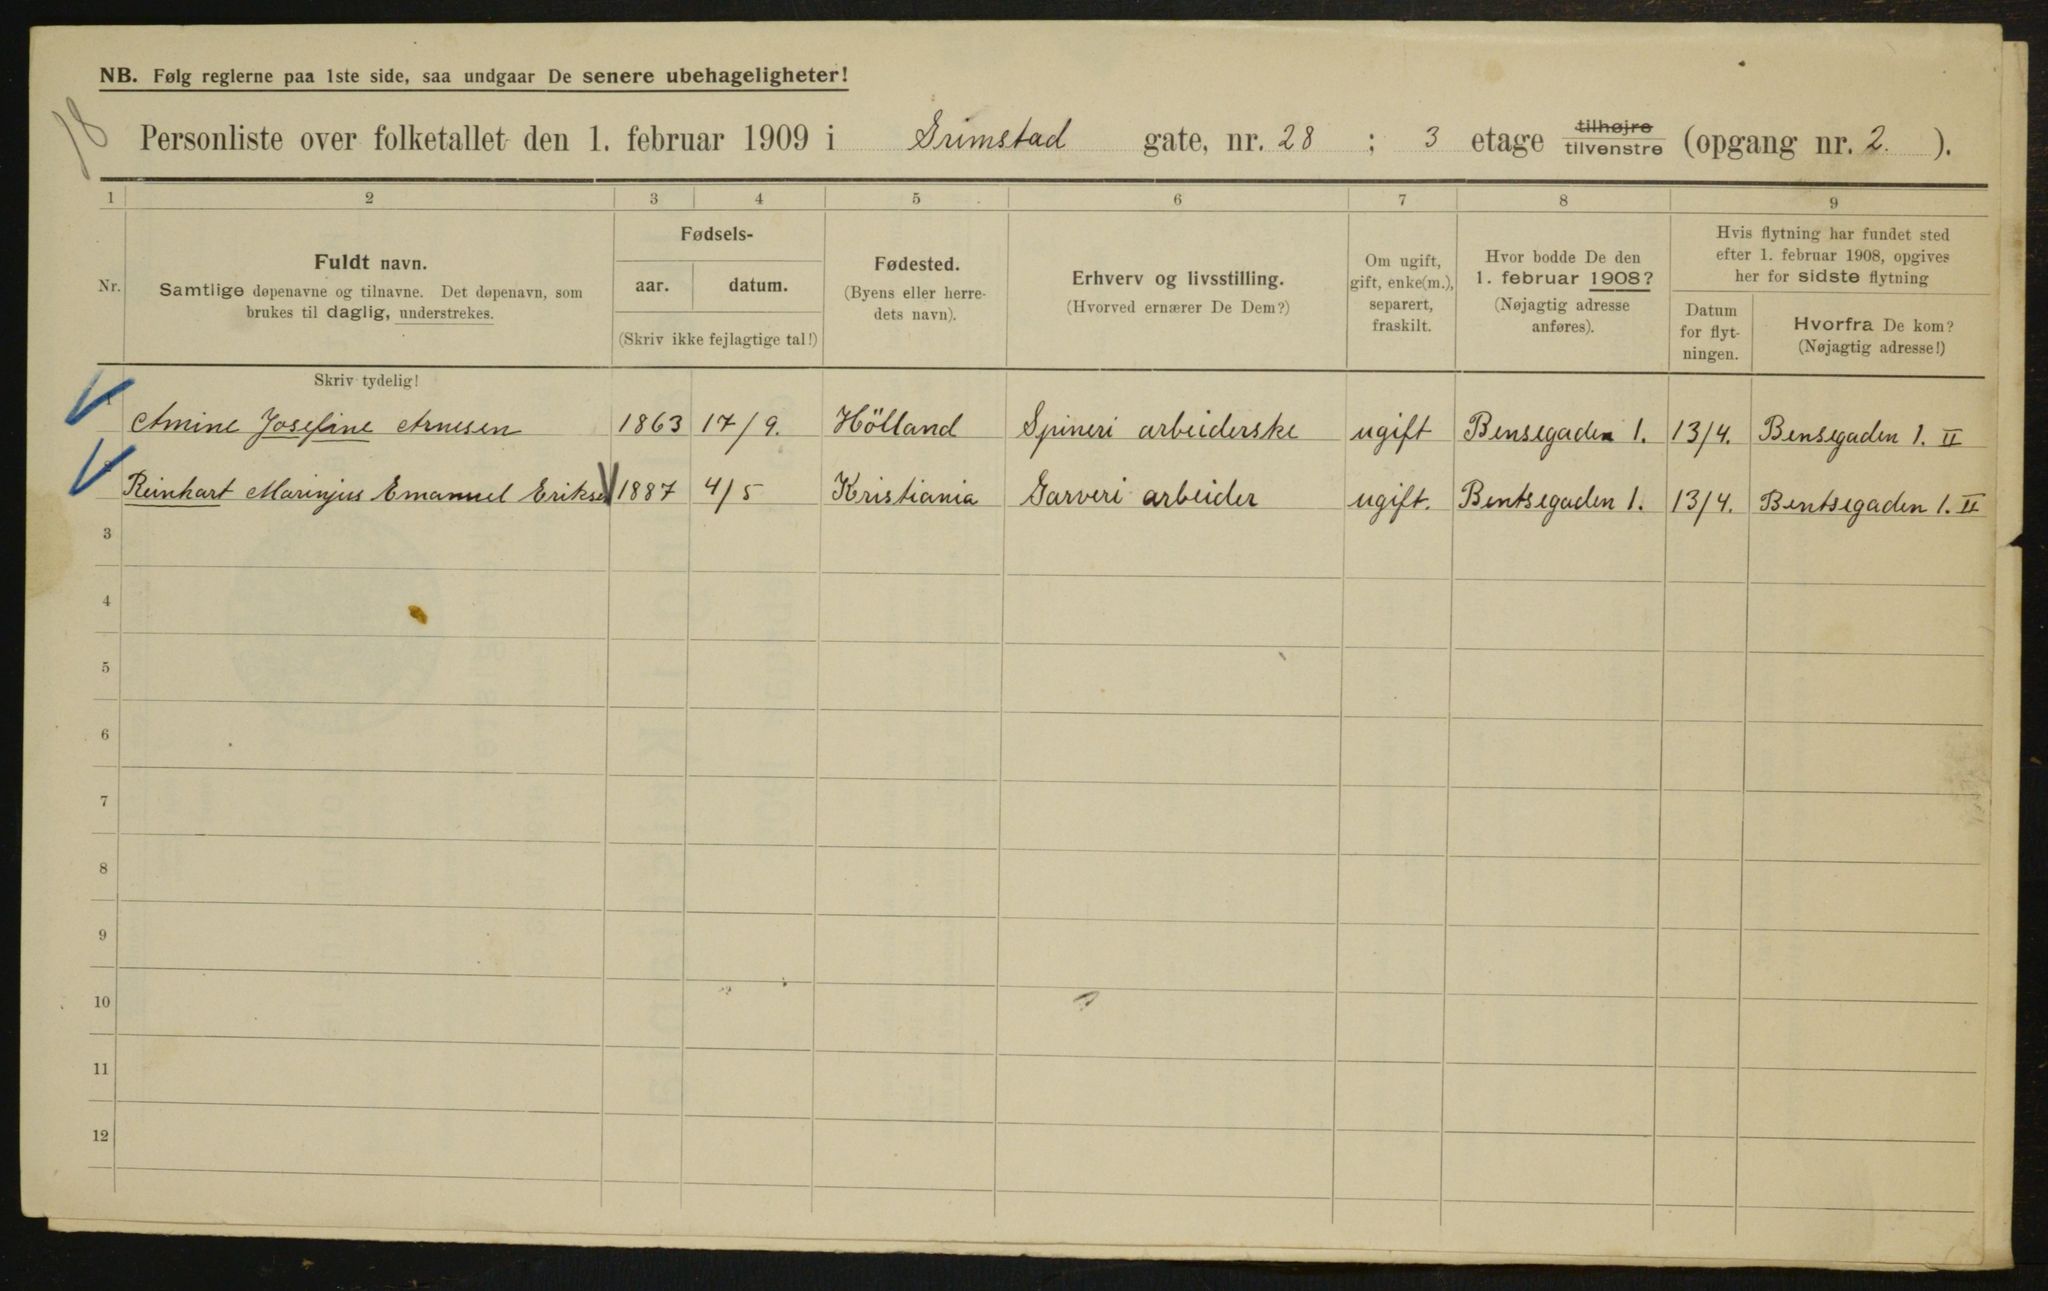 NB. Følg reglerne paa 1ste side, saa undgaar De senere ubehageligheter!
18
Personliste over folketallet den 1. februar 1909 i Grimstad gate, nr. 28 ; 3 etage tilhøjre tilvenstre (opgang nr. 2. ).
1 2 3 4 5 6 7 8 9
Nr.
Fuldt navn.
Samtlige døpenavne og tilnavne. Det døpenavn, som
brukes til daglig, understrekes.
Fødsels-
aar. datum.
(Skriv ikke fejlagtige tal!)
Fødested.
(Byens eller herre-
dets navn).
Erhverv og livsstilling.
(Hvorved ernærer De Dem?)
Om ugift,
gift, enke(m.),
separert,
fraskilt.
Hvor bodde De den
1. februar 1908?
(Nøjagtig adresse
anføres).
Hvis flytning har fundet sted
efter 1. februar 1908, opgives
her for sidste flytning
Datum
for flyt-
ningen.
Hvorfra De kom?
(Nøjagtig adresse!)
Skriv tydelig!
1 Amine Josefine Arnesen 1863 17/9. Hölland Spineri arbeiderske ugift Bensegaden 1. 13/4. Bensegaden 1. II
2 Reinhart Marinjus Emanuel Eriksen 1887 4/5 Kristiania Garveri arbeider ugift. Bentsegaden 1. 13/4. Bentsegaden 1. II
3
4
5
6
7
8
9
10
11
12